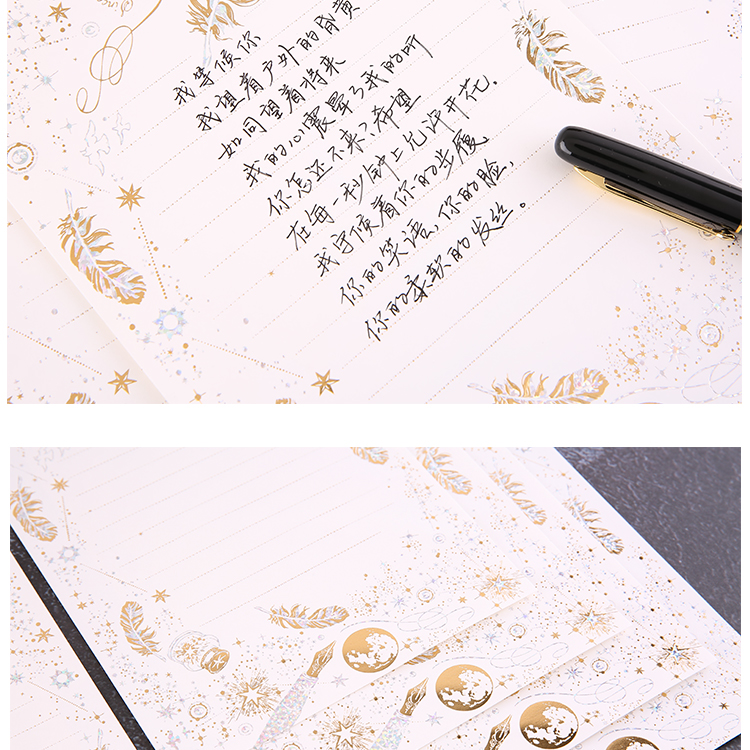 我等候你
我望着户外的昏黄
如同望着将来
我的心震晕了我的听
你怎还不来？希望
在每一秒钟上允许开花。
我守候着你的步履
你的笑语，你的脸，
你的柔软的发丝。